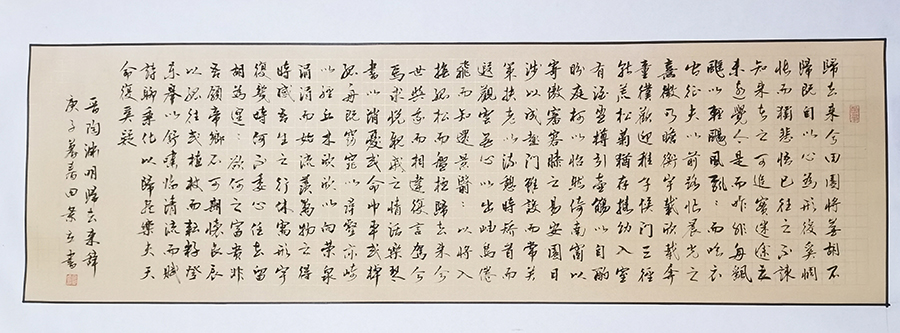 歸去来兮田園將蕪胡不
歸既自以心為形役奚惆
悵而獨悲悟已往之不諫
知来者之可追實迷途其
未遠覺今是而昨非舟颻
颻以輕颺風飄〻而吹衣
問征夫以前路恨晨光之
熹微乃瞻衡宇載欣載奔
僮僕歡迎稚子候門三徑
就荒松菊猶存携幼入室
有酒盈樽引壺觴以自酌
眄庭柯以怡顏倚南窗以
寄傲審容膝之易安園日
涉以成趣門雖設而常関
策扶老以流憩時矯首而
遐觀雲無心以出岫鳥倦
飛而知還景翳〻以將入
撫孤松而盤桓歸去来兮
世與我而相違復言駕兮
焉求悅親戚之情話樂琴
書以消憂或命巾車或棹
孤舟既窈窕以尋壑亦崎
以經丘木欣欣以向榮泉
涓涓而始流羨萬物之得
時感吾生之行休寓形宇
復幾時何不委心任去留
胡為遑〻欲何之富貴非
吾願帝鄉不可期懷良辰
以孤往或植杖而耘耔登
東皋以舒嘯臨清流而賦
詩聊乘化以歸盡樂夫天
命復奚疑
晋陶淵明歸去来辭
庚子暮春田景立書